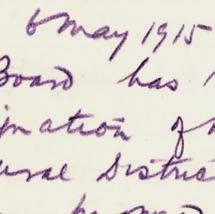 6 May 1915
Board has
nation of
ural District